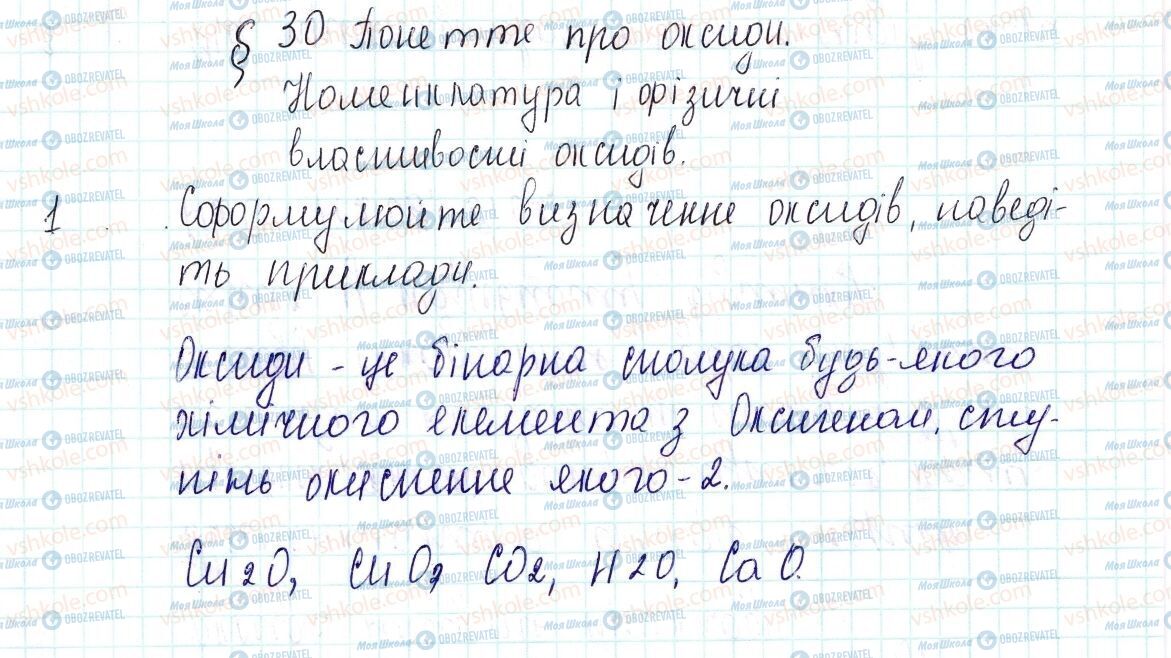 § 30 Понятте про оксиди.
Номенклатура і фізичні
властивості оксидів.
1 Сформулюйте визначення оксидів, наведі-
ть приклади.
Оксиди - це бінарна сполука будь-якого
хімічного елемента з Оксигеном, сту-
пінь окиснення якого -2.
Cu2O, CuO, CO2, H2O, CaO.